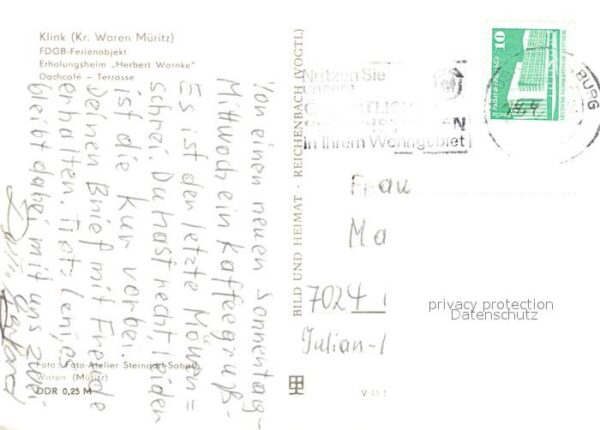 Klink (Kr. Waren Müritz)
FDGB-Ferienobjekt
Erholungsheim „Herbert Warnke"
Dachcafé – Terrasse
Von einen neuen Sonnentag-
Mittwoch ein Kaffeegruß-
Es ist der letzte Möwen=
schrei. Du hast recht, leider
ist die Kur vorbei.
Deinen Brief mit Freude
erhalten.
bleibt dabei, mit uns zwei
Foto: Foto-Atelier Steindorf-Sabath
Waren (Müritz)
DDR 0,25 M
BILD UND HEIMAT · REICHENBACH (VOGTL)
V 11
Nutzen Sie
unsere
in Ihrem Wohngebiet
BURG
10
DDR
Frau
Ma
7024
Julian-
privacy protection
Datenschutz